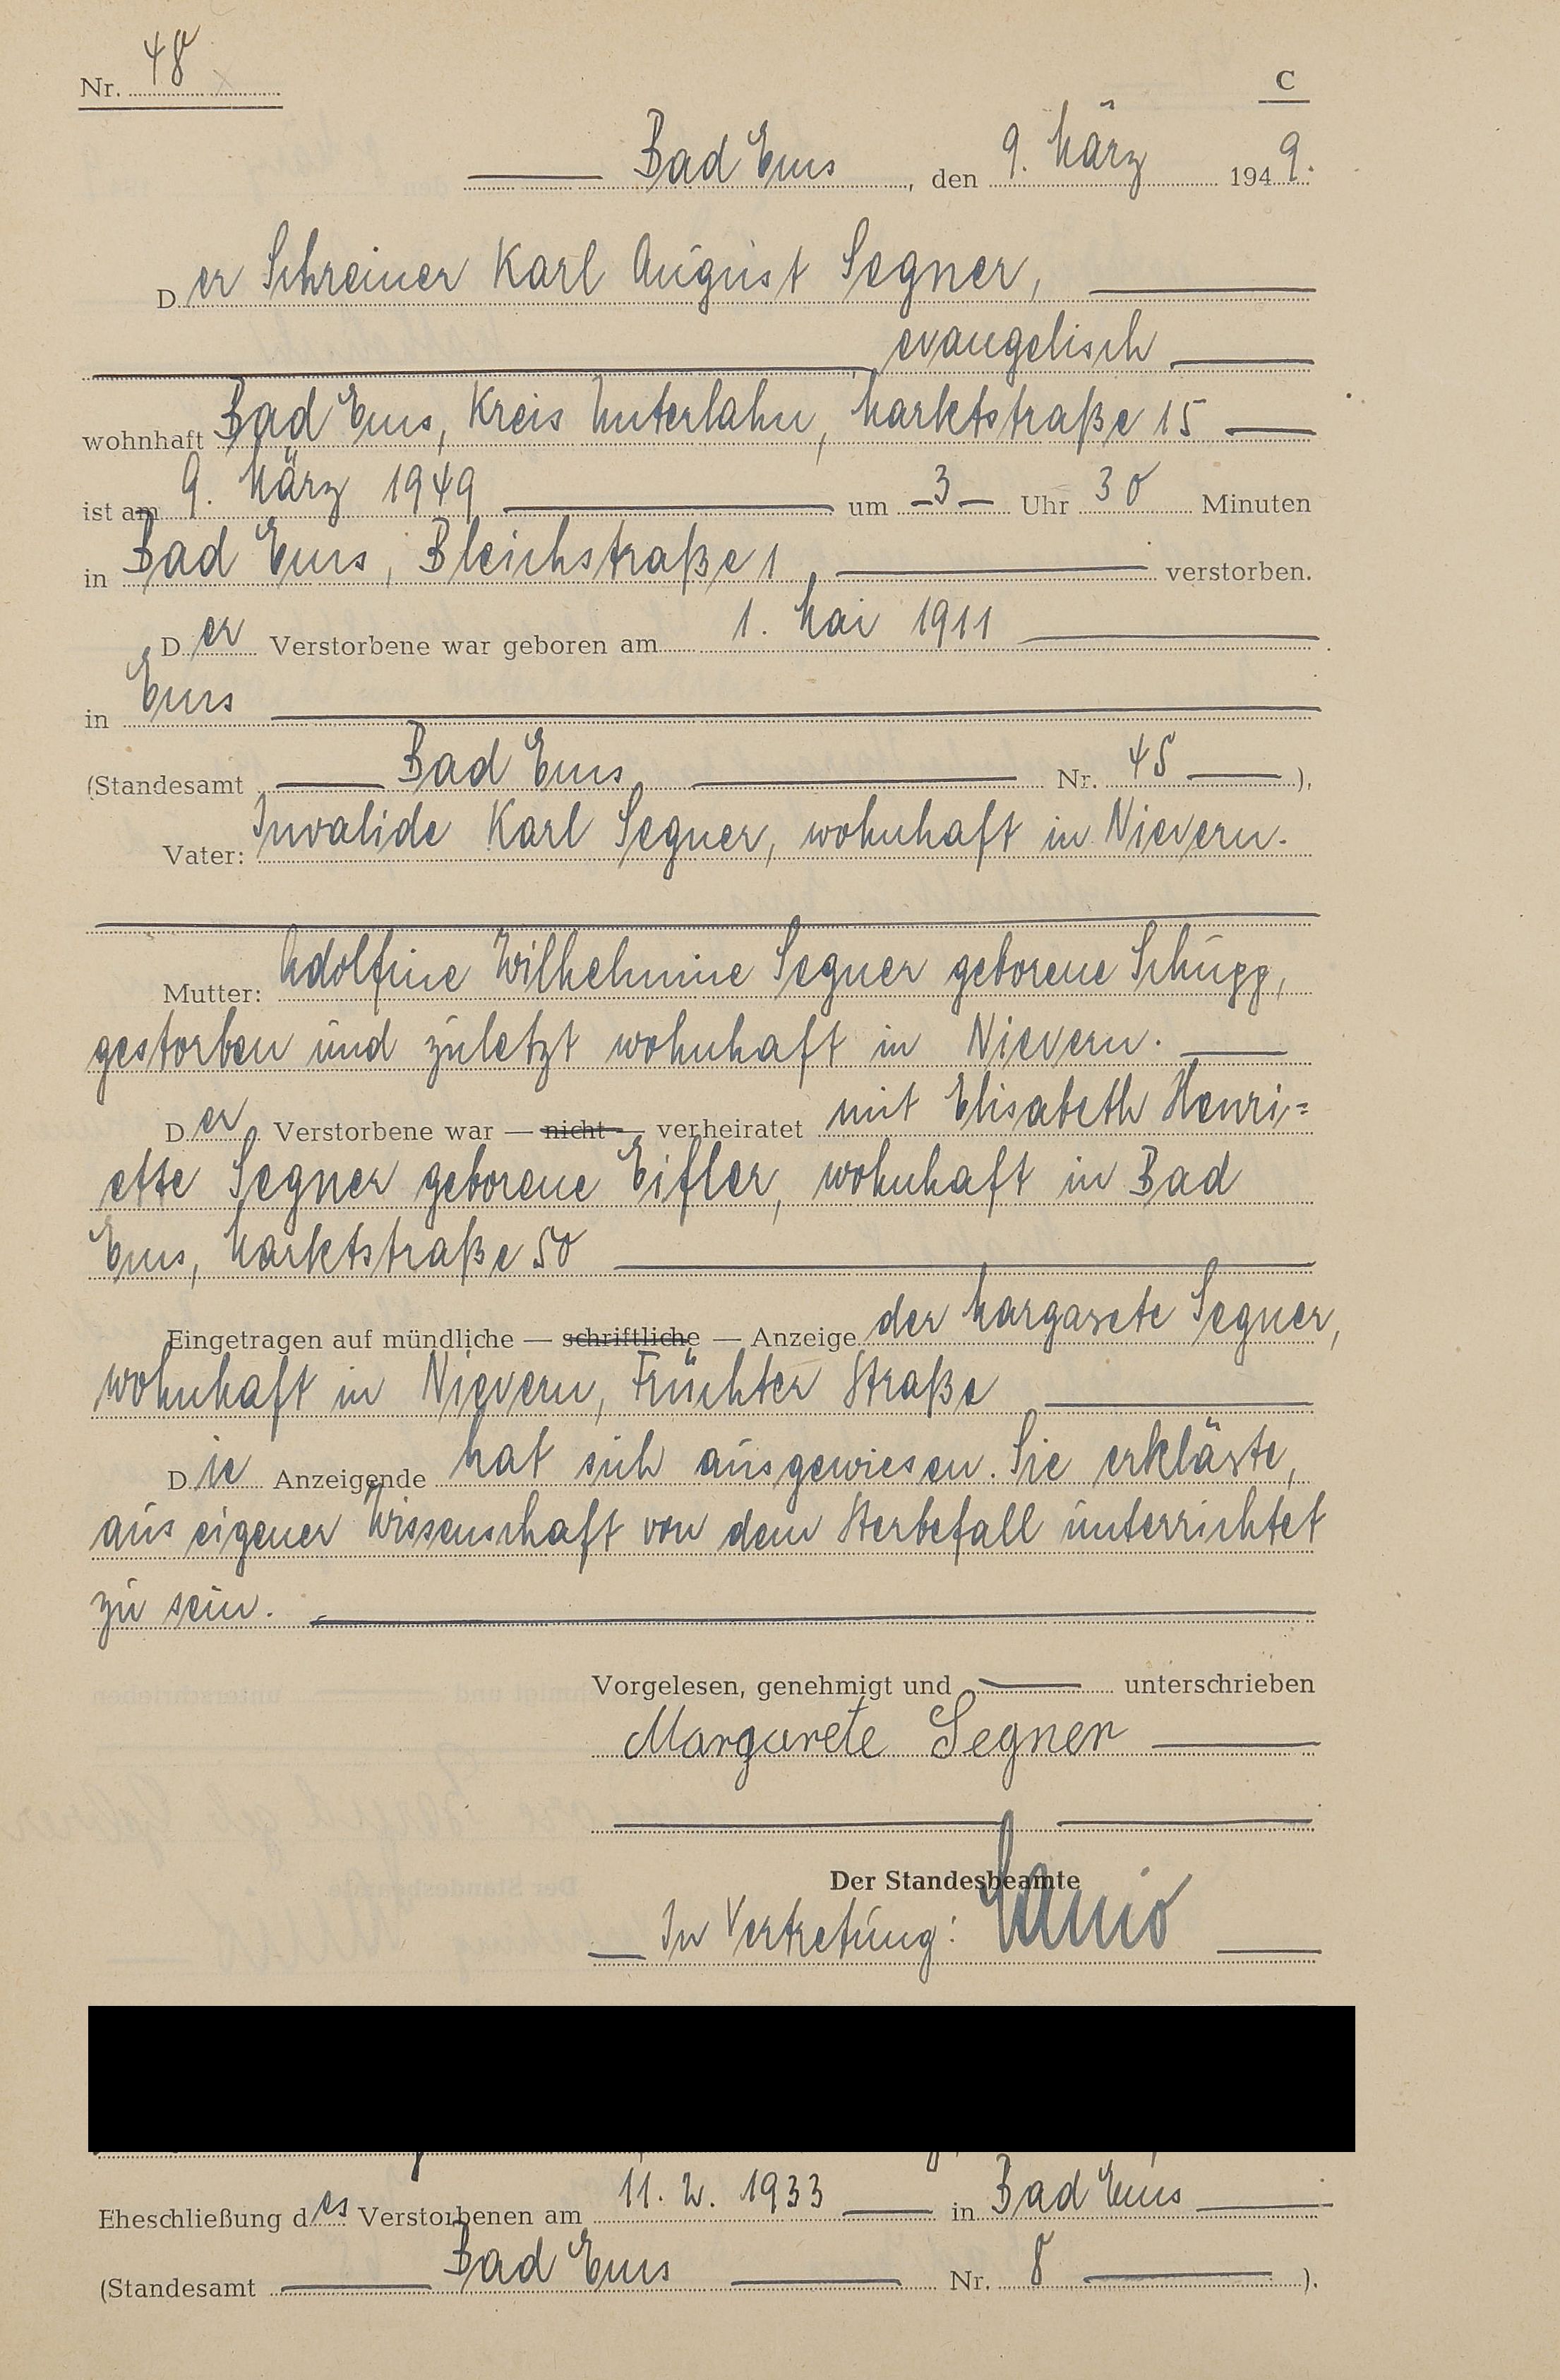 Nr. 48
C
Bad Ems, den 9. März 1949.
Der Schreiner Karl August Segner,
evangelisch
wohnhaft Bad Ems, Kreis Unterlahn, Marktstraße 15
ist am 9. März 1949 um 3 Uhr 30 Minuten
in Bad Ems, Bleichstraße 1, verstorben.
Der Verstorbene war geboren am 1. Mai 1911
in Ems
(Standesamt Bad Ems Nr. 45),
Vater: Invalide Karl Segner, wohnhaft in Nievern.
Mutter: Adolfine Wilhelmine Segner geborene Schupp,
gestorben und zuletzt wohnhaft in Nievern.
Der Verstorbene war — nicht — verheiratet mit Elisabeth Henri=
ette Segner geborene Eifler, wohnhaft in Bad
Ems, Marktstraße 50
Eingetragen auf mündliche — schriftliche — Anzeige der Margarete Segner,
wohnhaft in Nievern, Früchter Straße
Die Anzeigende hat sich ausgewiesen. Sie erklärte,
aus eigener Wissenschaft von dem Sterbefall unterrichtet
zu sein.
Vorgelesen, genehmigt und unterschrieben
Margarete Segner
Der Standesbeamte
In Vertretung:
Eheschließung des Verstorbenen am 11. 2. 1933 in Bad Ems
(Standesamt Bad Ems Nr. 8).